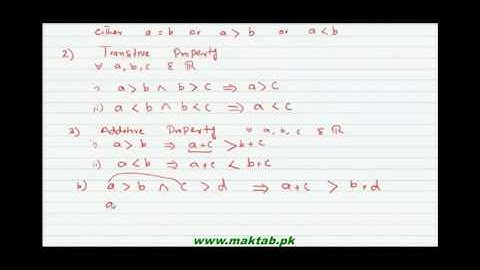 either a = b or a > b or a < b
2) Transitive Property
∀ a, b, c ε ℝ
i) a > b ∧ b > c ⇒ a > c
ii) a < b ∧ b < c ⇒ a < c
3) Additive Property ∀ a, b, c ε ℝ
i) a > b ⇒ a+c > b+c
ii) a < b ⇒ a+c < b+c
b) a > b ∧ c > d ⇒ a+c > b+d
a
www.maktab.pk